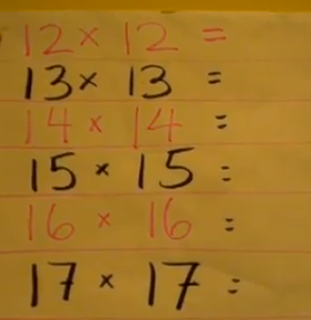 12 × 12 =
13 × 13 =
14 × 14 =
15 × 15 =
16 × 16 =
17 × 17 =